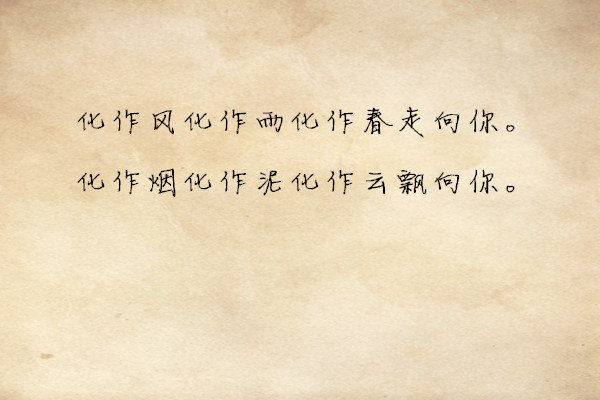 化作风化作雨化作春走向你。
化作烟化作泥化作云飘向你。